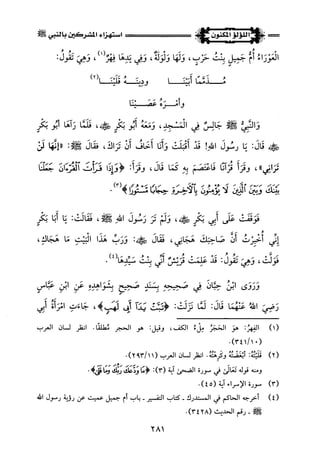 اللؤلؤ المكنون
استهزاء المشركين بالنبي ﷺ
العَوْرَاءُ أُمُّ جَمِيلٍ بِنْتُ حَرْبٍ، وَلَهَا وَلْوَلَةٌ، وَفِي يَدِهَا فِهْرٌ(١)، وَهِيَ تَقُولُ:
مُــذَمَّمًا أَبَيْنَــا ودِينَــهُ قَلَيْنَــا(٢)
وأَمْــرَهُ عَصَــيْنَا
وَالنَّبِيُّ ﷺ جَالِسٌ فِي الْمَسْجِدِ، وَمَعَهُ أَبُو بَكْرٍ، فَلَمَّا رَآهَا أَبُو بَكْرٍ
قَالَ: يَا رَسُولَ اللهِ! قَدْ أَقْبَلَتْ وَأَنَا أَخَافُ أَنْ تَرَاكَ، فَقَالَ ﷺ: «إِنَّهَا لَنْ
تَرَانِي»، وقَرَأَ قُرْآنًا فَاعْتَصَمَ بِهِ كَمَا قَالَ، وقَرَأَ: ﴿وَإِذَا قَرَأْتَ الْقُرْآنَ جَعَلْنَا
بَيْنَكَ وَبَيْنَ الَّذِينَ لَا يُؤْمِنُونَ بِالْآخِرَةِ حِجَابًا مَّسْتُورًا﴾(٣).
فَوَقَفَتْ عَلَى أَبِي بَكْرٍ، وَلَمْ تَرَ رَسُولَ اللهِ ﷺ، فَقَالَتْ: يَا أَبَا بَكْرٍ
إِنِّي أُخْبِرْتُ أَنَّ صَاحِبَكَ هَجَانِي، فَقَالَ: وَرَبِّ هَذَا الْبَيْتِ مَا هَجَاكِ،
فَوَلَّتْ، وَهِيَ تَقُولُ: قَدْ عَلِمَتْ قُرَيْشٌ أَنِّي بِنْتُ سَيِّدِهَا(٤).
وَرَوَى ابْنُ حِبَّانَ فِي صَحِيحِهِ بِسَنَدٍ صَحِيحٍ بِشَوَاهِدِهِ عَنِ ابْنِ عَبَّاسٍ
رَضِيَ اللهُ عَنْهُمَا قَالَ: لَمَّا نَزَلَتْ: ﴿تَبَّتْ يَدَا أَبِي لَهَبٍ﴾، جَاءَتِ امْرَأَةُ أَبِي
(١) الفِهْرُ: هوَ الحَجَرُ مِلْءُ الكف، وقيل: هو الحجر مُطلقًا. انظر لسان العرب
(٣٤١/١٠).
(٢) قَلَيْتُهُ: أَبْغَضْتُهُ وكَرِهْتُهُ. انظر لسان العرب (٢٩٣/١١).
ومنه قوله تَعَالَىٰ في سورة الضحى آية (٣): ﴿مَا وَدَّعَكَ رَبُّكَ وَمَا قَلَىٰ﴾.
(٣) سورة الإسراء آية (٤٥).
(٤) أخرجه الحاكم في المستدرك ـ كتاب التفسير ـ باب أم جميل عميت عن رؤية رسول الله
ﷺ ـ رقم الحديث (٣٤٢٨).
٢٨١